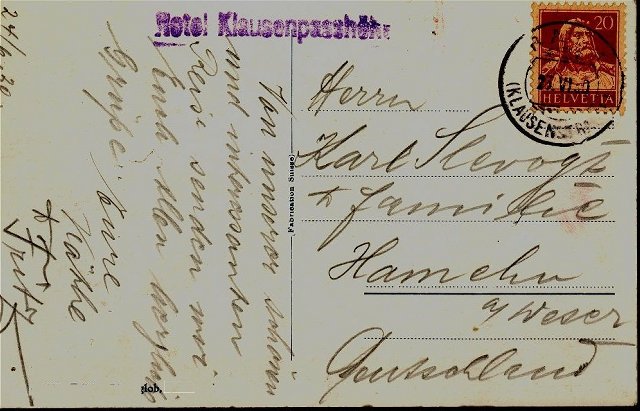 Hotel Klausenpasshöhe
24/6.30.
Von unserer schönen
und interessanten
Reise senden wir
Euch allen herzliche
Grüße. Eure
Käthe
& Fritz
Fabrication Suisse
Herrn
Karl Slevogt
& familie
Hameln
a/Weser
Deutschland
20
HELVETIA
VI
(KLAUSENSTR.